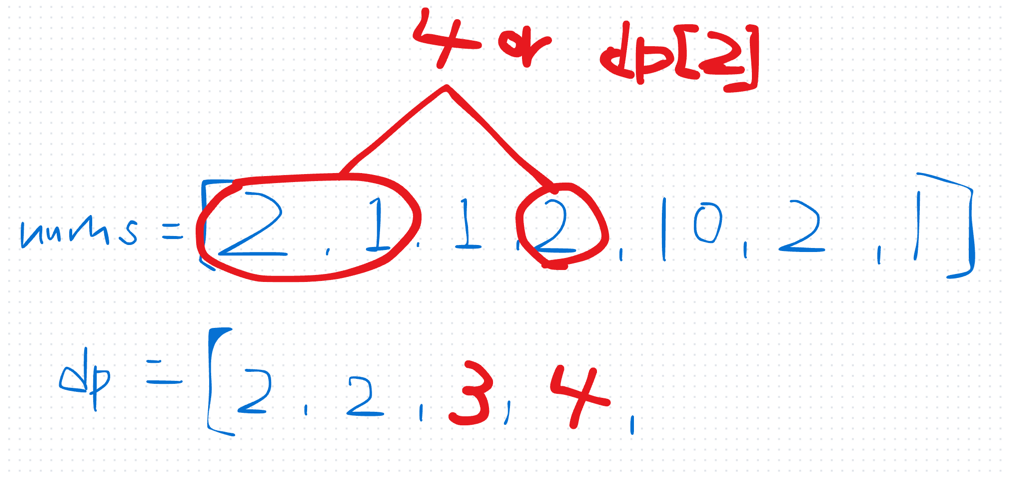 4 or dp[2]
nums = [2, 1, 1, 2, 10, 2, 1]
dp = [2, 2, 3, 4,